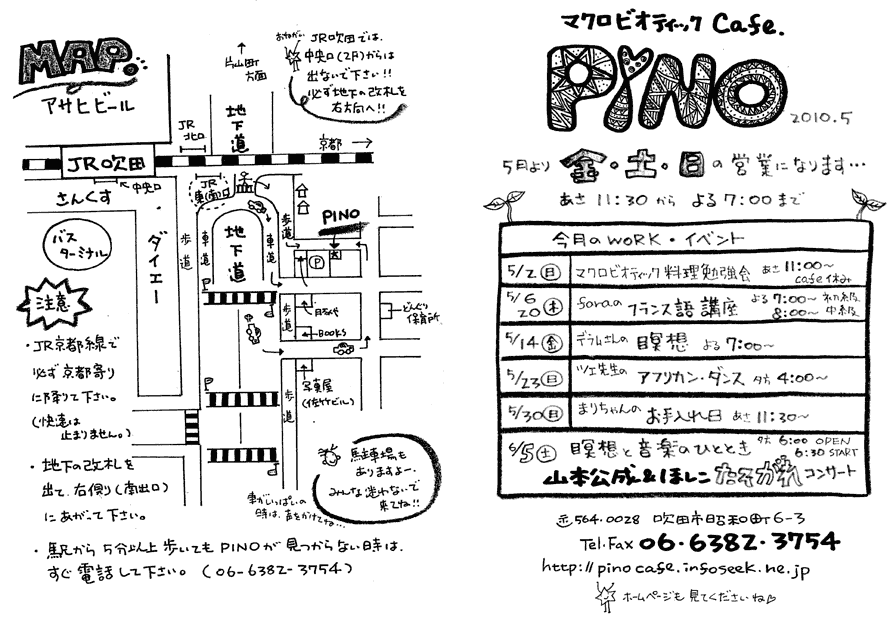 MAP.
アサヒビール
片山町
方面
おねがい JR吹田では、
中央口(2F)からは
出ないで下さい!!
必ず地下の改札を
右方向へ!!
地下道
JR
北口
京都
JR吹田
中央口
さんくす
JR
東(南)口
バス
ターミナル
ダイエー
歩道
車道
地下道
車道
歩道
PINO
P
歩道
BOOKS
どんぐり
保育所
写真屋
(佐竹ビル)
歩道
注意
・JR京都線で
必ず京都寄り
に降りて下さい。
(快速は
止まりません。)
・地下の改札を
出て、右側り(南出口)
にあがって下さい。
駐車場も
ありますよー。
みんな迷わないで
来てね!!
車がいっぱいの
時は、声をかけてね…
・駅から5分以上歩いてもPINOが見つからない時は、
すぐ電話して下さい。(06-6382-3754)
マクロビオティック Cafe.
PiNO
2010.5
5月より 金・土・日の営業になります…
あさ11:30から よる7:00まで
今月のWORK・イベント
5/2(日) マクロビオティック料理勉強会 あさ11:00〜
cafe休み
5/6 20(木) foraのフランス語講座 よる7:00〜初級
8:00〜中級
5/14(金) デラムさんの瞑想 よる7:00〜
5/23(日) ツェ先生のアフリカン・ダンス 夕方4:00〜
5/30(日) まりちゃんのお手入れ日 あさ11:30〜
6/5(土) 瞑想と音楽のひととき 夕方6:00 OPEN
6:30 START
山本公成&ほしこ たそがれコンサート
〒564-0028 吹田市昭和町6-3
Tel.Fax 06・6382・3754
http://pinocafe.infoseek.ne.jp
ホームページも見てくださいね♡